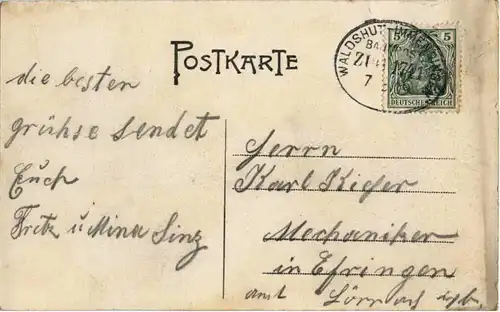 POSTKARTE
WALDSHUT
5 5
DEUTSCHES REICH
die besten
grühse sendet
Euch
Fritz u Mina Sinz
Herrn
Karl Kiefer
Mechaniker
in Efringen
amt Lörrach